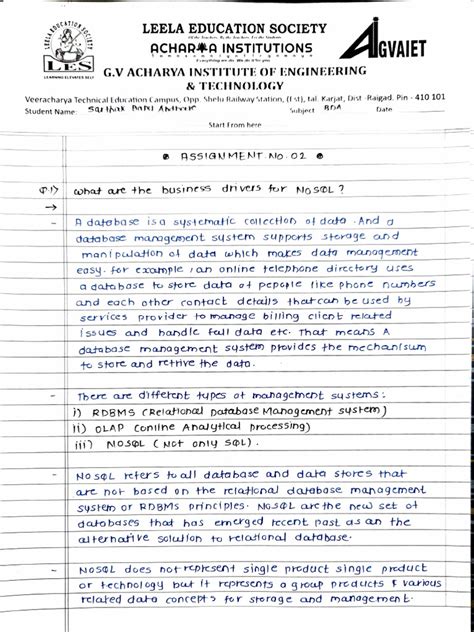 LEELA EDUCATION SOCIETY
ACHARYA INSTITUTIONS
G.V ACHARYA INSTITUTE OF ENGINEERING
& TECHNOLOGY
LEELA EDUCATION SOCIETY
LES
LEARNING ELEVATES SELF
AIGVAIET
Veeracharya Technical Education Campus, Opp. Shelu Railway Station, (Est), tal. Karjat, Dist -Raigad. Pin - 410 101
Student Name: Subject BDA Date
Start From here
ASSIGNMENT NO. 02
Q.1) What are the business drivers for NoSQL ?
→
- A database is a systematic collection of data . And a
database management system supports storage and
manipulation of data which makes data management
easy. for example , an online telephone directory uses
a database to store data of pepople like phone numbers
and each other contact details that can be used by
services provider to manage billing client related
issues and handle fall data etc. That means A
database management system provides the mechanisum
to store and retrive the data.
- There are different types of management systems :
i) RDBMS (Relational Database Management system)
ii) OLAP (online Analytical processing)
iii) NOSQL ( Not only SQL) .
- NoSQL refers to all database and data stores that
are not based on the relational database management
system or RDBMS principles. NoSQL are the new set of
databases that has emerged recent past as an the
alternative solution to relational database.
- NoSQL does not represent single product single product
or technology but it represents a group products & various
related data concepts for storage and management.